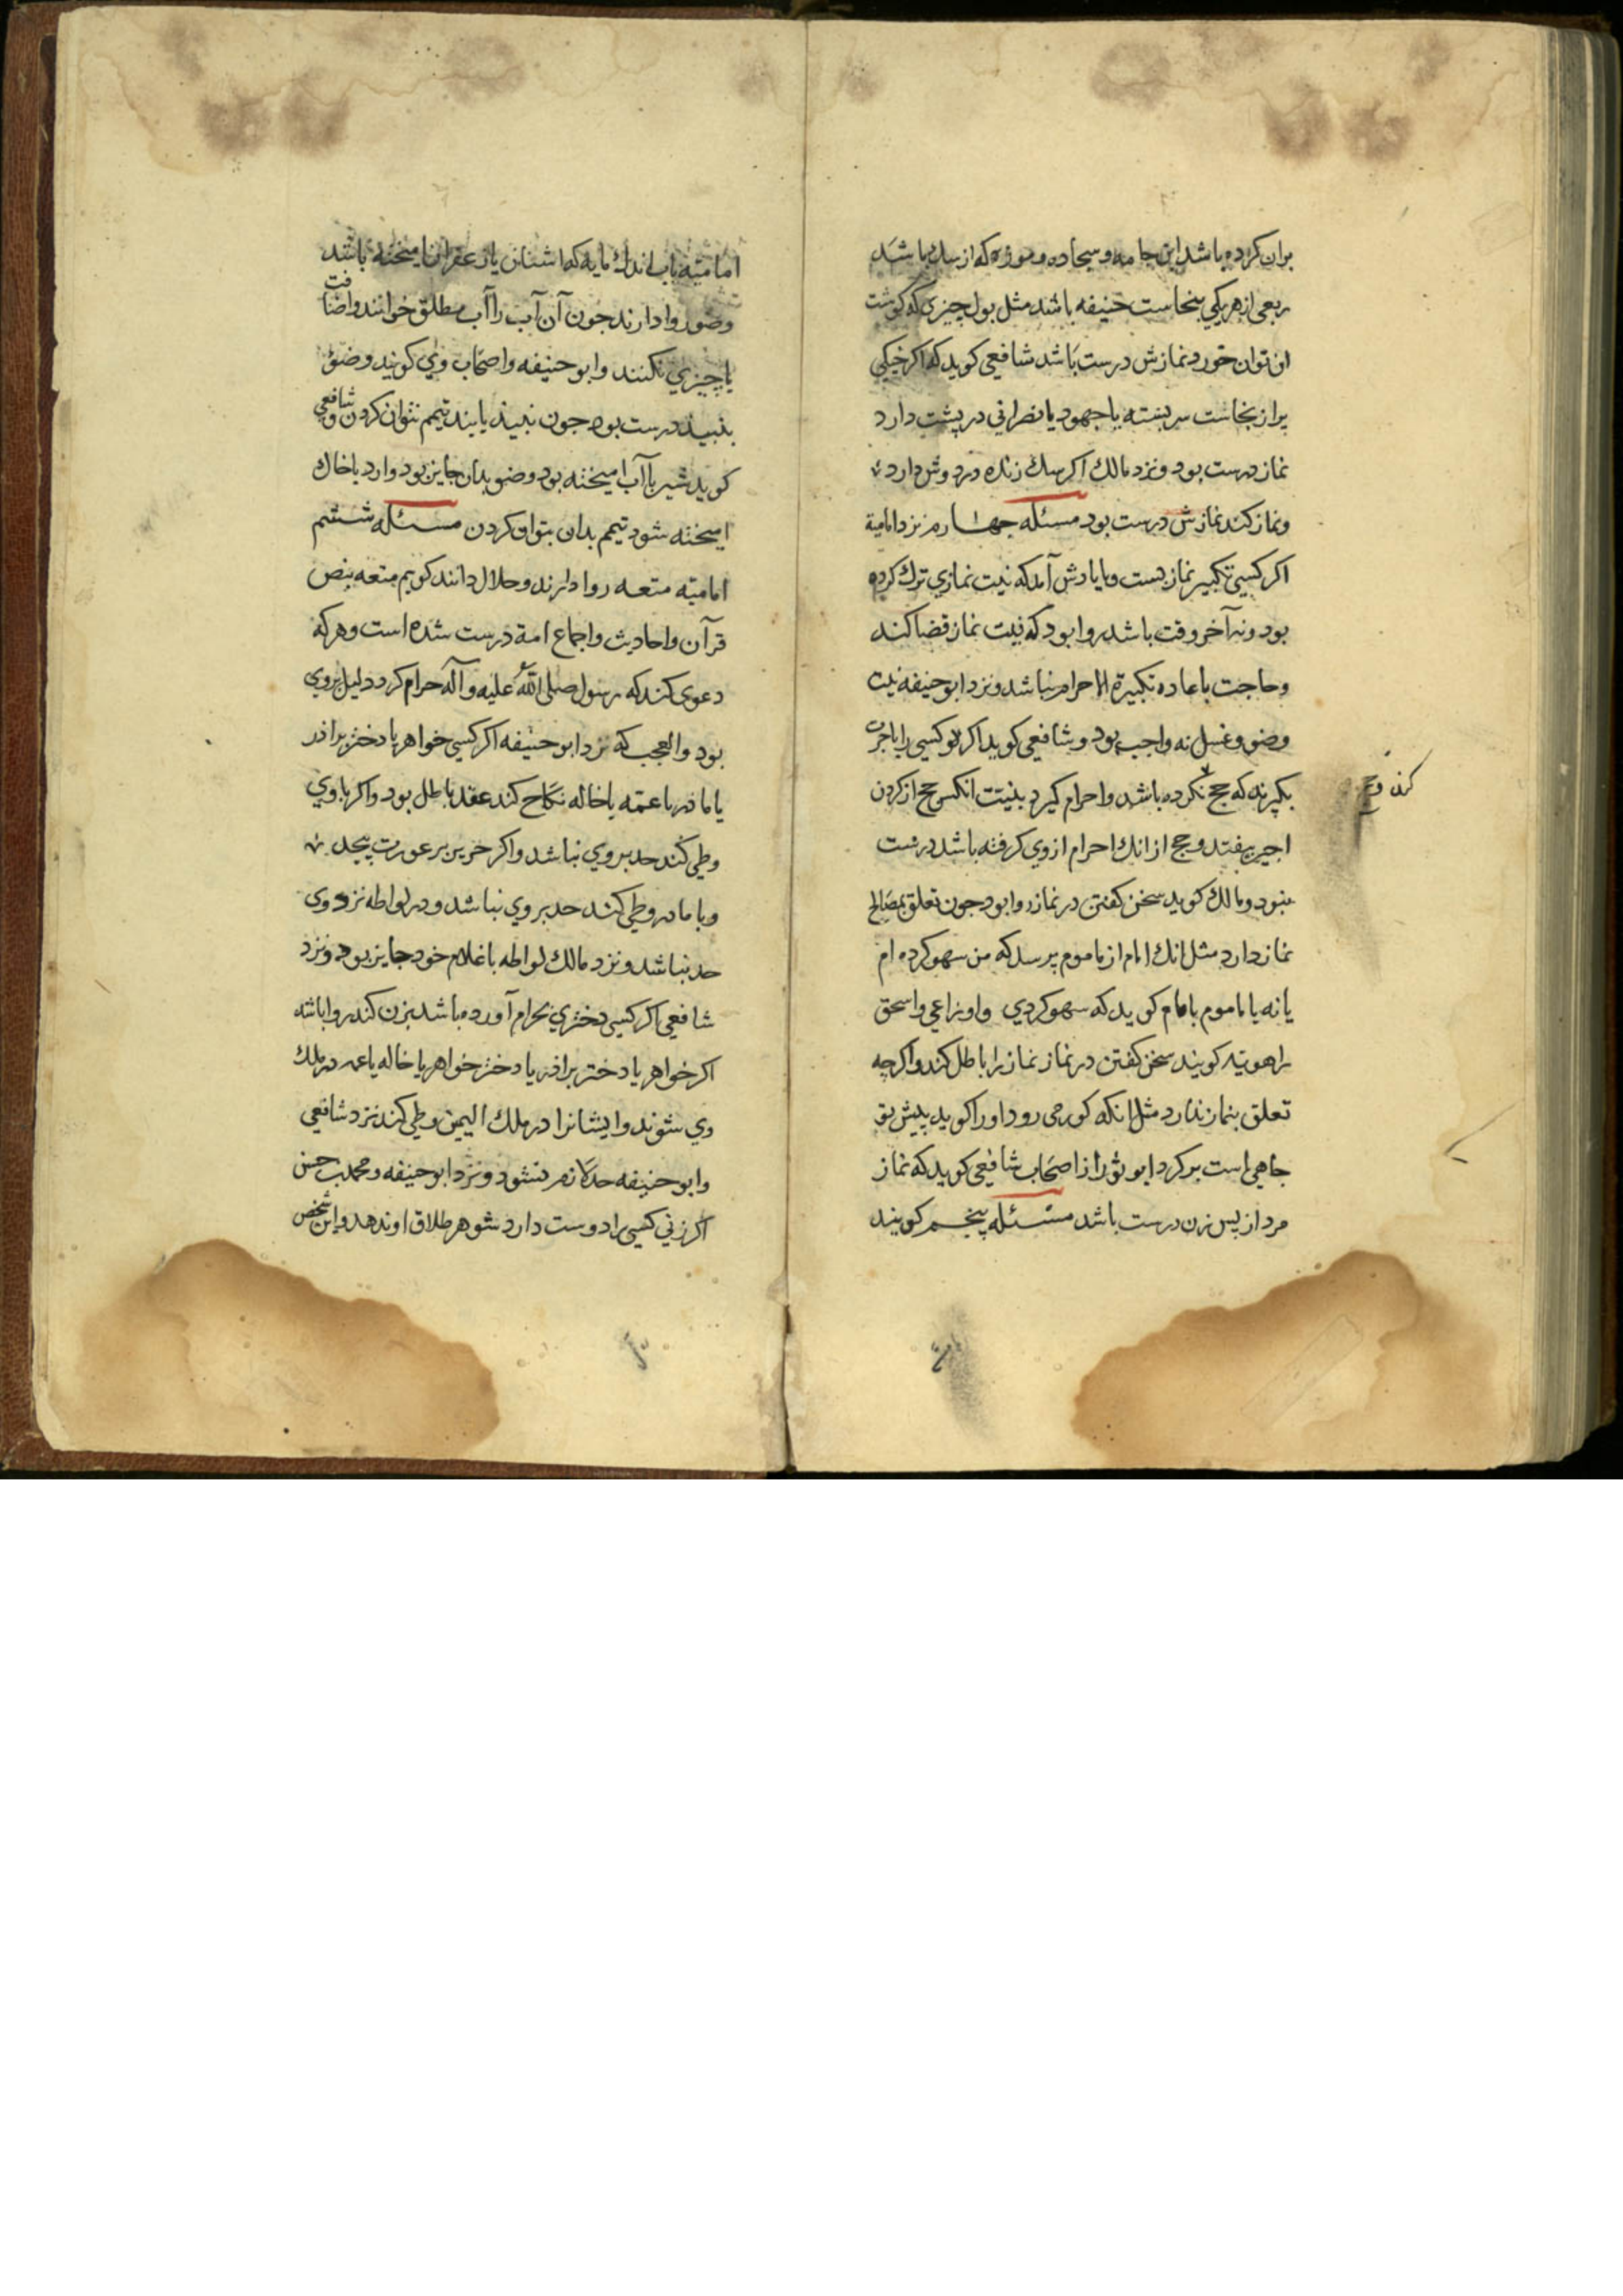 بران کرده باشد این جامه و سجاده و موزه که از سك باشد
ربعی از هر یکی بنجاست خفیفه باشد مثل بول چیزی که کوشت
او توان خورد نمازش درست باشد شافعی کوید که اکر خیکی
پر از نجاست سر بسته یا جهود یا نصرانی در پشت دارد
نماز درست بود و نزد مالك اکر سك زنده در دوش دارد
و نماز کند نمازش درست بود مسئله جهارم نزد امامیة
اکر کسی تکبیر نماز بست و با یادش آمد که نیت نمازي ترك کرده
بود و نه آخر وقت باشد روا بود که نیت نماز قضا کند
و حاجت باعاده تکبیرة الاحرام نباشد و نزد ابو حنیفه نیت
وضو و غسل نه واجب بود و شافعی کوید اکر کسی را باجرت
بکیرند که حج نکرده باشد و احرام کیرد بنیت انکس حج از کردن
اجیر بیفتد و حج از انك احرام از وي کرفته باشد درست
نبود و مالك کوید سخن کفتن در نماز روا بود جون تعلق بمصالح
نماز دارد مثل انك امام از ماموم پرسد که من سهو کرده ام
یا نه یا ماموم با امام کوید که سهو کردي و اوزاعي و اسحق
راهویه کویند سخن کفتن در نماز نماز را باطل کند و اکرچه
تعلق بنماز ندارد مثل انکه کور می رود او را کوید پیش تو
جاهی است بر کرد ابو ثور از اصحاب شافعی کوید که نماز
مرد از پس زن درست باشد مسئله پنجم کویند
کردن وحج
امامیه بآب اندك مایه که اشنان یا زعفران با میخته باشد
وضو روا دارند جون آن آب را آب مطلق خوانند و اضافت
با چیزي نکنند و ابو حنیفه و اصحاب وي کویند وضو
بنبیذ درست بود جون نبیذ یابند تیمم نتوان کردن و شافعي
کوید شیر با آب امیخته بود وضو بدان جایز بود و ارد با خاك
امیخته شود تیمم بدان بتوان کردن مسئله ششم
امامیه متعه روا دارند و حلال دانند کویم متعه بنص
قرآن و احادیث و اجماع امة درست شده است و هر که
دعوی کند که رسول صلی الله علیه و آله حرام کرد دلیل بروي
بود و العجب که نزد ابو حنیفه اکر کسی خواهر یا دختر برادر
یا مادر یا عمه یا خاله نکاح کند عقد باطل بود و اکر با وي
وطی کند حد بر وي نباشد و اکر حریر بر عورت پیچد
و با مادر وطی کند حد بر وي نباشد و در لواطه نزد وی
حد نباشد و نزد مالك لواطه با غلام خود جایز بود و نزد
شافعی اکر کسی دختري بحرام آورده باشد بزن کند روا باشد
اکر خواهر یا دختر برادر یا دختر خواهر یا خاله یا عمه در ملك
وي شوند و ایشانرا در ملك الیمین وطی کند نزد شافعي
و ابو حنیفه حد لازم نشود و نزد ابو حنیفه و محمد بن حسن
اکر زنی کسی را دوست دارد شوهر طلاق او ندهد و این شخص